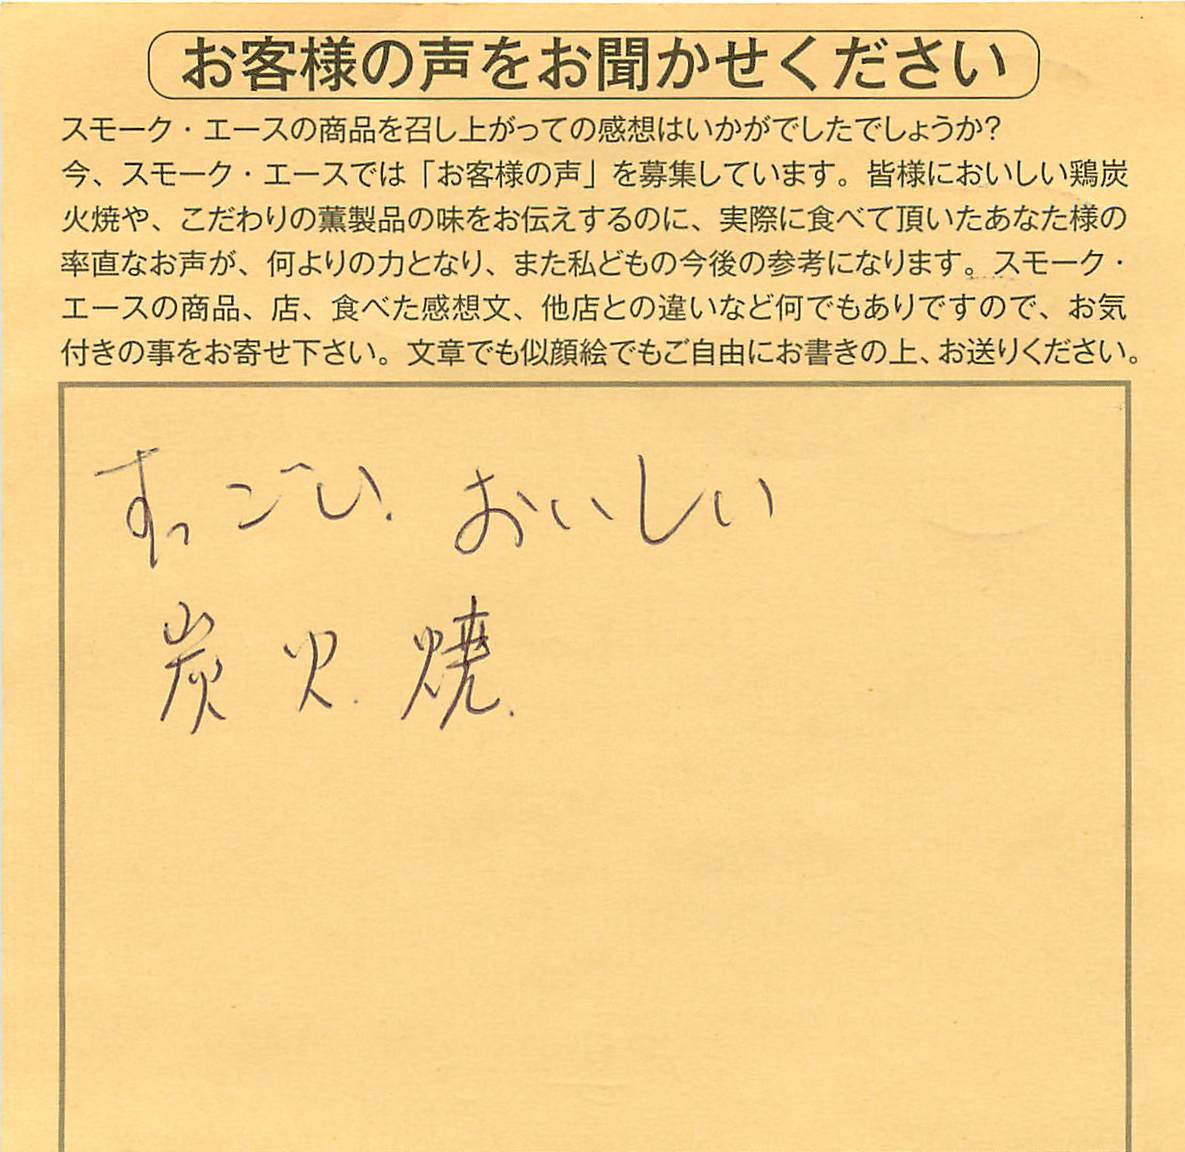 お客様の声をお聞かせください
スモーク・エースの商品を召し上がっての感想はいかがでしたでしょうか?
今、スモーク・エースでは「お客様の声」を募集しています。皆様においしい鶏炭
火焼や、こだわりの薫製品の味をお伝えするのに、実際に食べて頂いたあなた様の
率直なお声が、何よりの力となり、また私どもの今後の参考になります。スモーク・
エースの商品、店、食べた感想文、他店との違いなど何でもありですので、お気
付きの事をお寄せ下さい。文章でも似顔絵でもご自由にお書きの上、お送りください。
すっごい.おいしい
炭火.焼.